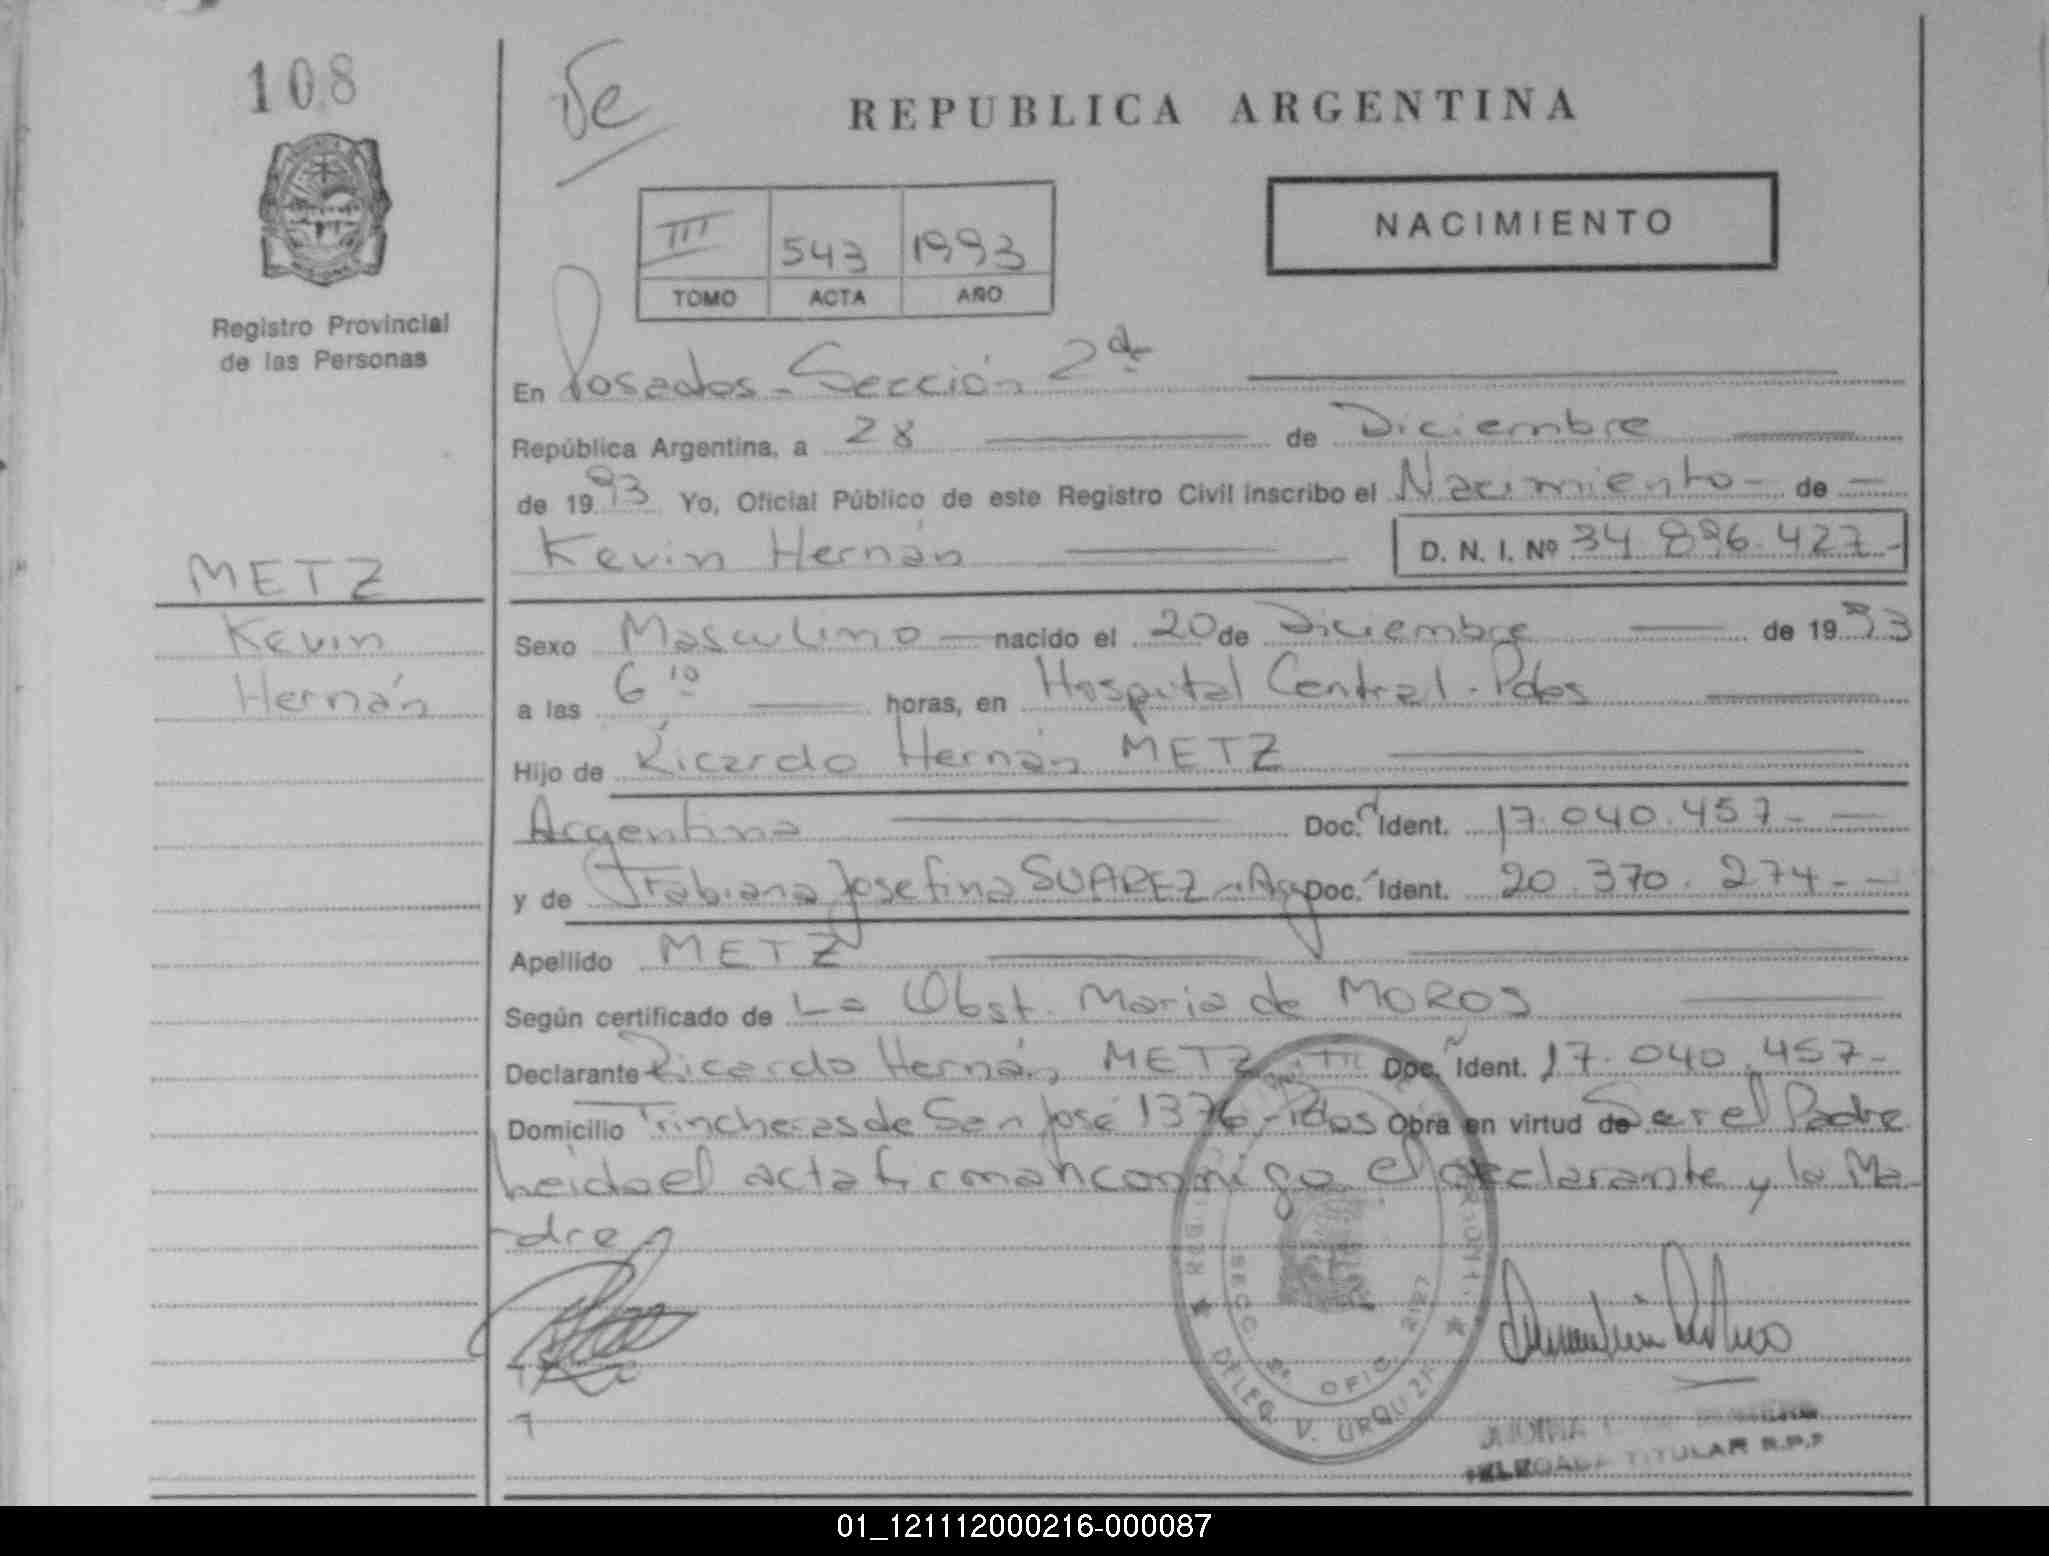 108
Registro Provincial
de las Personas
REPUBLICA ARGENTINA
NACIMIENTO
III 543 1993
TOMO ACTA AÑO
En Posadas - Sección 2da
República Argentina, a 28 de Diciembre
de 1993 Yo, Oficial Público de este Registro Civil inscribo el Nacimiento - de -
Kevin Hernán D. N. I. Nº 34.896.427-
METZ
Kevin
Hernán
Sexo Masculino nacido el 20 de Diciembre de 1993
a las 6 10 horas, en Hospital Central - Pdas
Hijo de Ricardo Hernán METZ
Argentina Doc. Ident. 17.040.457-
y de Fabiana Josefina SUAREZ - Arg Doc. Ident. 20.370.274-
Apellido METZ
Según certificado de La Obst. Maria de MOROS
Declarante Ricardo Hernán METZ Doc. Ident. 17.040.457-
Domicilio Trincheras de San José 1376 - Pdas Obra en virtud de Ser el Padre
Leida el acta firman conmigo el declarante y la Ma-
dre
SECC. 2a. OFIC. 2127
DELEG. V. URQUIZA
TITULAR R.P.P
01_121112000216-000087